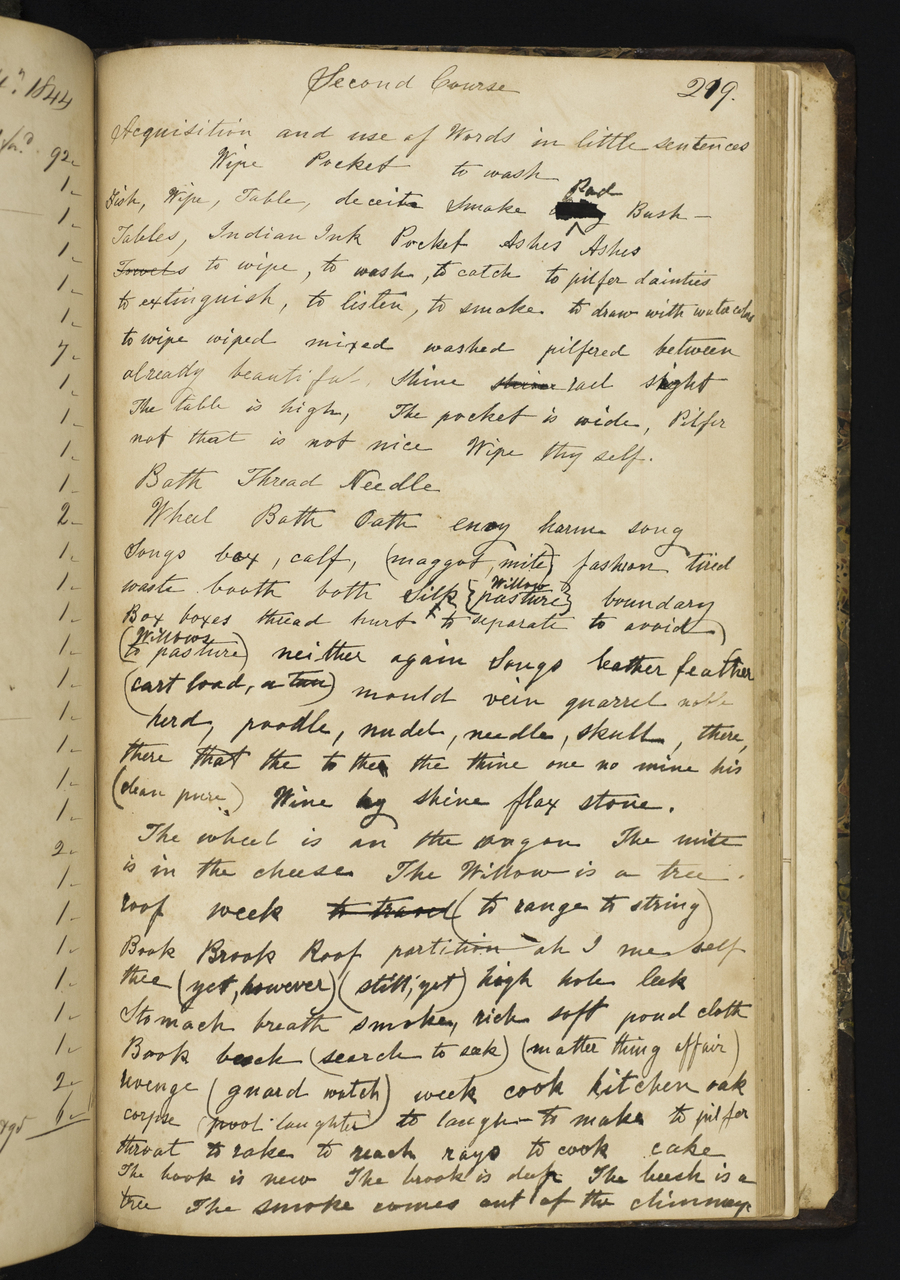 4.n 1844
92-
1-
1-
1-
1-
1-
7-
1-
1-
1-
1-
2-
1-
1-
1-
1-
1-
1-
1-
1-
2-
1-
1-
1-
1-
1-
1-
2-
6-
Second Course 219.
Acquisition and use of Words in little sentences
Wipe Pocket to wash
Fish, Wipe, Table, deceits smoke Rod Bush -
Tables, Indian Ink Pocket Ashes Ashes
Towels to wipe, to wash, to catch to pilfer dainties
to extinguish, to listen, to smoke to draw with watercolors
to wipe wiped mixed washed pilfered between
already beautiful. Shine shine rael slight
The table is high, The pocket is wide, Pilfer
not that is not nice Wipe thy self.
Bath Thread Needle
Wheel Bath Oath envy harm song
Songs box, calf, (maggot, mite) fashion tired
waste booth both Silk {Willow pasture} boundary
Box boxes thread hurt to separate to avoid
(Willows to pasture) neither again Songs leather feather
(cart load, a tun) mould vein quarrel noble
herd, poodle, nudel, needle, skull, there,
there that the to thee the thine one no mine his
(clean pure) Wine by shine flax stone.
The wheel is on the wagon The mite
is in the cheese The Willow is a tree.
roof week to travel (to range to string)
Book Brook Roof partition oh I me self
thee (yet, however) (still, yet) high hole leek
Stomach breath smoke, rich soft poud cloth
Book beech (search to seek) (matter thing affair)
revenge (guard watch) week cook kitchen oak
corpse (pool laughter) to laugh to make to pilfer
throat to rake to reach rays to cook cake
The book is new The brook is deep The beech is a
tree The smoke comes out of the chimney.